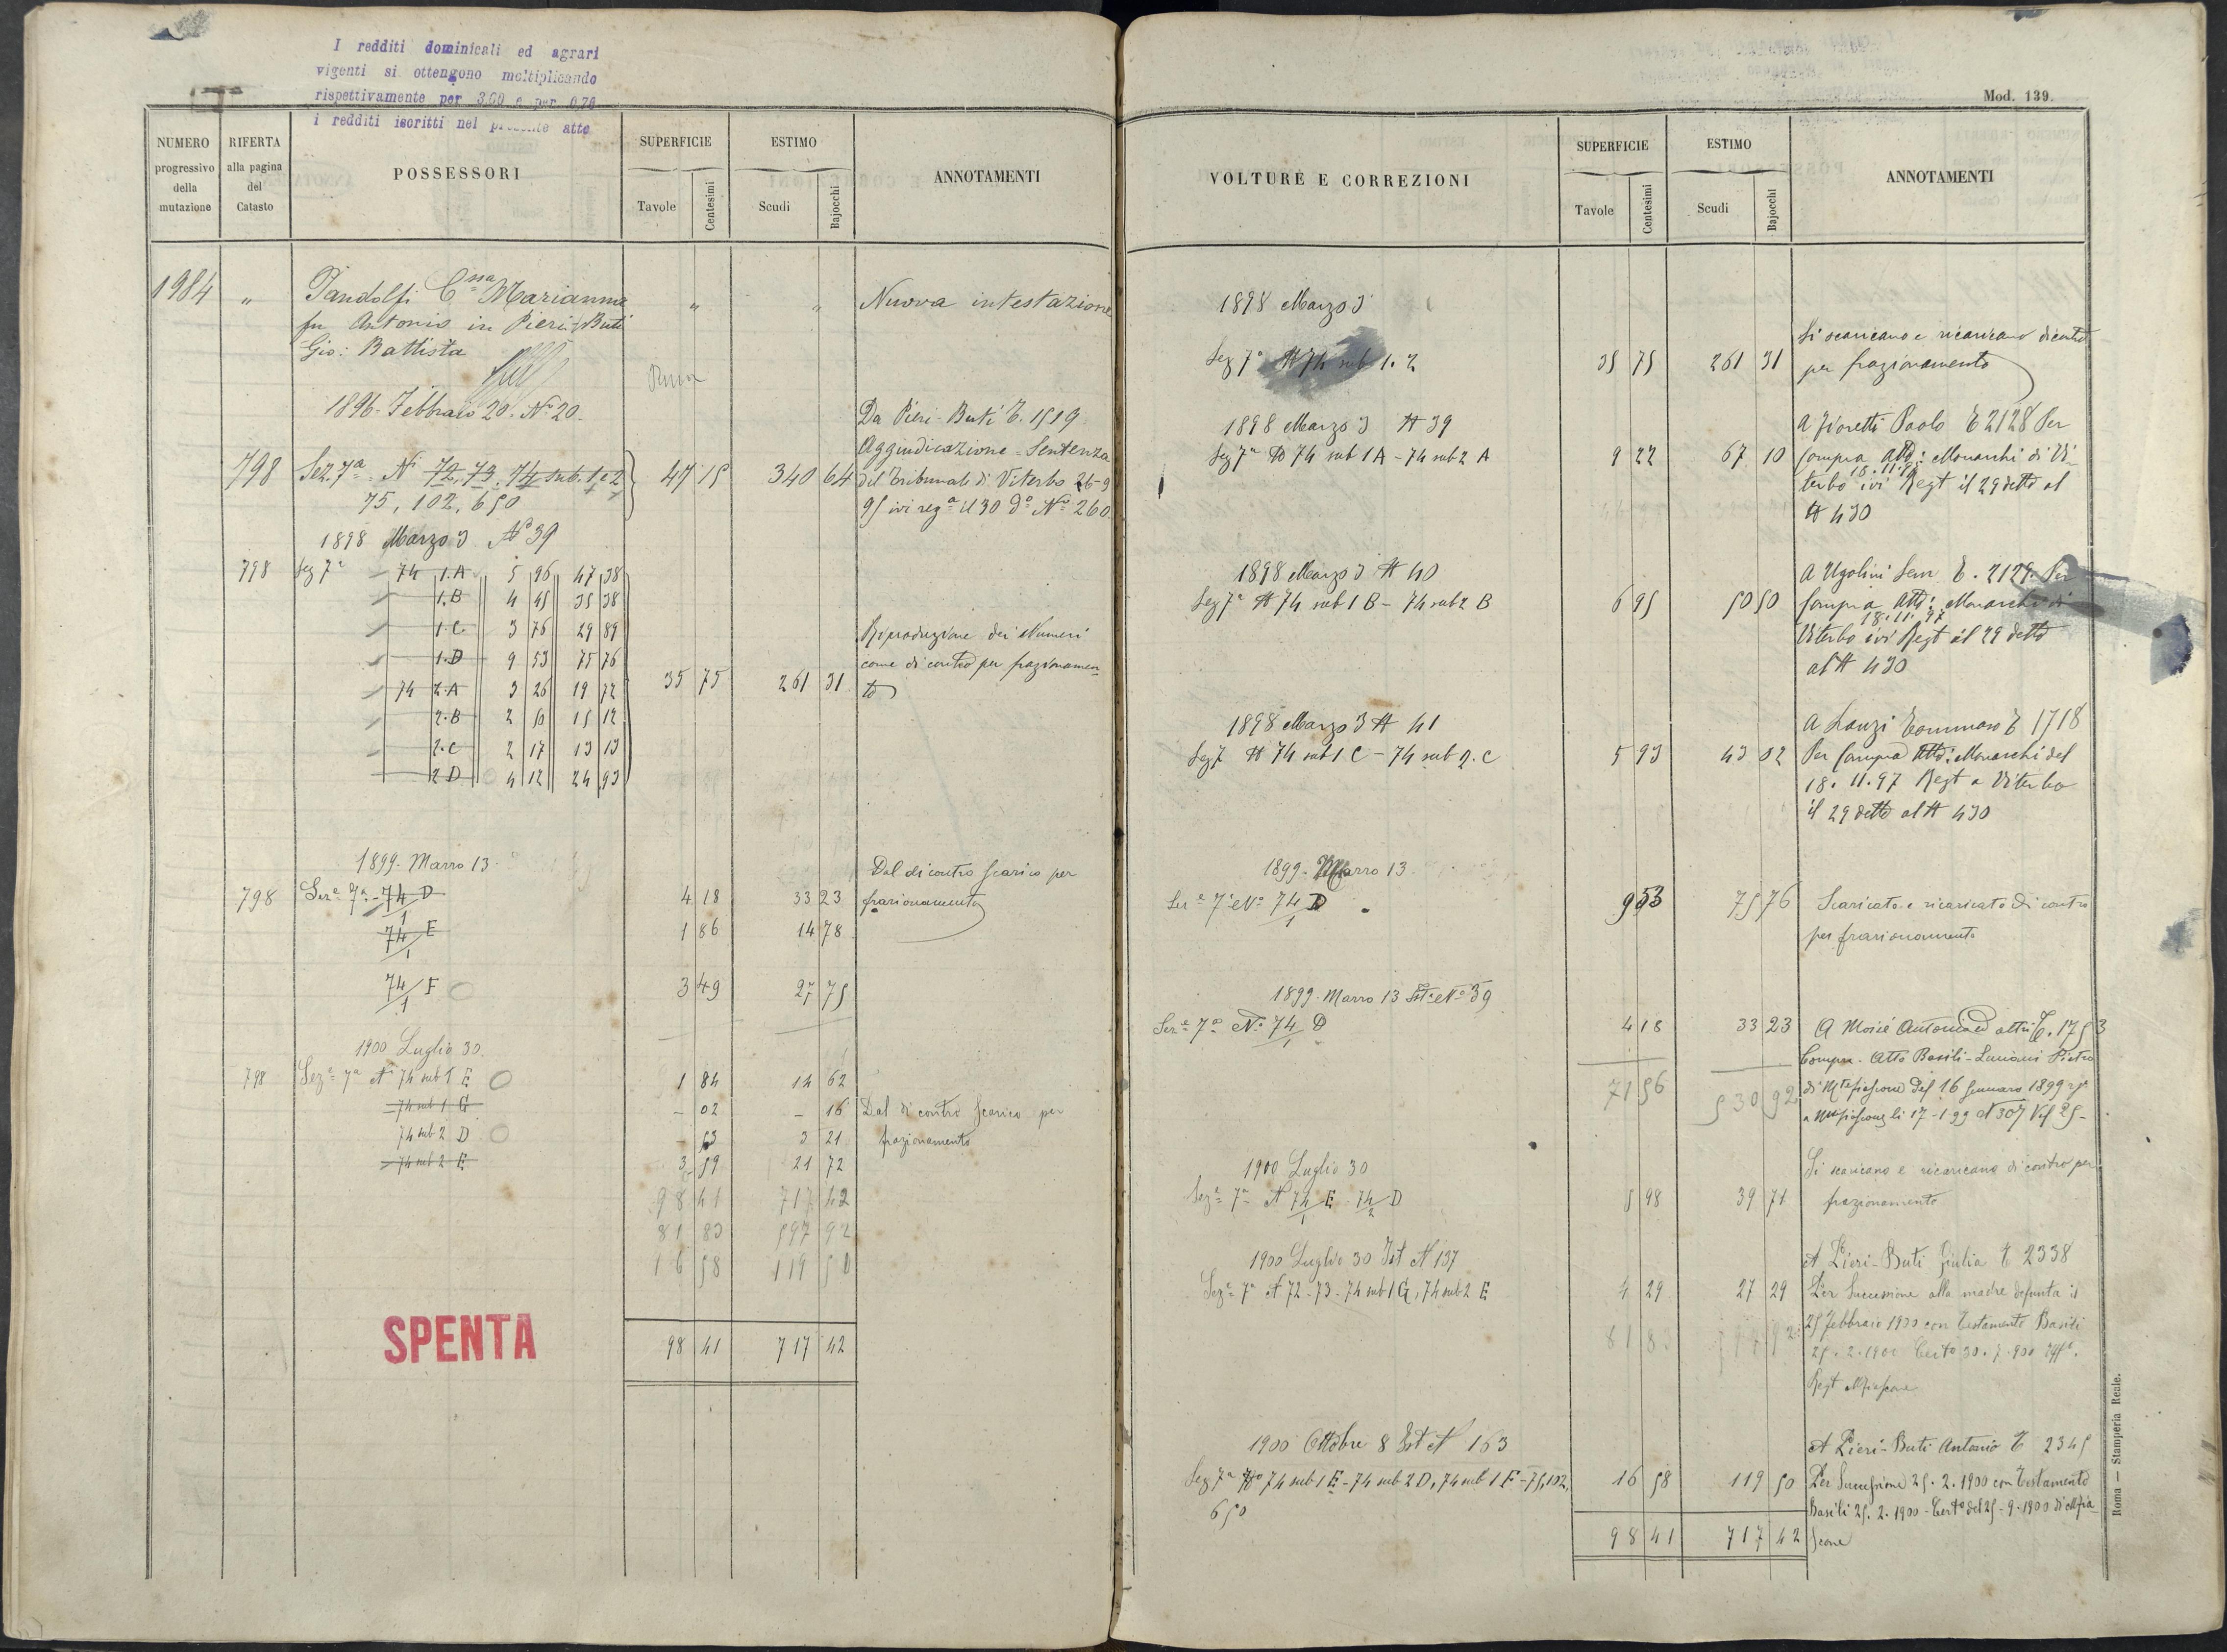 I redditi dominicali ed agrari
vigenti si ottengono moltiplicando
rispettivamente per 3,60 e per 0,70
i redditi iscritti nel presente atto
NUMERO progressivo della mutazione
RIFERTA alla pagina del Catasto
POSSESSORI
SUPERFICIE Tavole Centesimi
ESTIMO Scudi Bajocchi
ANNOTAMENTI
1984 " Pandolfi C.ssa Marianna " " Nuova intestazione
fu Antonio in Pieri-Buti
Gio: Battista
1896. Febbraio 20. N° 20.
Da Pieri-Buti T. 1519
Aggiudicazione = Sentenza
798 Sez. 7a N. 72, 73, 74 sub. 1 e 2 47 15 340 64 del Tribunale di Viterbo 26-9
75, 102, 650
95 ivi reg.a il 30 do N° 260
1898 Marzo 3 N° 39
798 Sez 7a 74 1.A 5 96 47 38
1.B 4 45 35 38
1.C 3 76 29 89
1.D 9 53 75 76
74 2.A 3 26 19 72
2.B 2 50 15 12
2.C 2 17 13 13
2 D 4 12 24 93
35 75 261 31
Riproduzione dei Numeri
come di contro per frazionamen=
to
1899. Marzo 13.
Dal di contro scarico per
798 Sez.e 7a - 74/1 D 4 18 33 23 frazionamento
74/1 E 1 86 14 78
74/1 F 3 49 27 75
1900 Luglio 30.
798 Sez.e 7a N. 74 sub 1 E 1 84 14 62
74 sub 1 G - 02 - 16 Dal di contro scarico per
74 sub 2 D - 53 3 21 frazionamento
74 sub 2 E 3 59 21 72
98 41 717 42
81 83 597 92
16 58 119 50
SPENTA
98 41 717 42
Mod. 139.
VOLTURE E CORREZIONI
SUPERFICIE Tavole Centesimi
ESTIMO Scudi Bajocchi
ANNOTAMENTI
1898 Marzo 3
Si scaricano e ricaricano di contro
Sez 7a N 74 sub 1. 2 35 75 261 31 per frazionamento
1898 Marzo 3 N 39
A Fioretti Paolo T 2128 Per
Sez 7a N 74 sub 1 A - 74 sub 2 A 9 22 67 10 Compra Atti: Monarchi di Vi-
18.11.97
terbo ivi Regt il 29 detto al
N 430
1898 Marzo 3 N 40
A Ugolini T. 2129. Per
Sez 7a N 74 sub 1 B - 74 sub 2 B 6 95 50 50 Compra Atti: Monarchi di
18.11.97
Viterbo ivi Regt il 29 detto
al N 430
1898 Marzo 3 N 41
A Lanzi Tommaso T 1718
Sez 7 N 74 sub 1 C - 74 sub 2. C 5 93 43 02 Per Compra Atti: Monarchi del
18. 11. 97 Regt a Viterbo
il 29 detto al N 430
1899. Marzo 13.
Sez.e 7a N° 74/1 D 9 53 75 76 Scaricato e ricaricato di contro
per frazionamento
1899. Marzo 13 N° 39
Sez.e 7a N° 74/1 D 4 18 33 23 A Moisè Antonio ed altri T. 1753
Compra. Atto Basili-Luciani Pietro
71 56 530 92 di Mtefiascone del 16 Gennaro 1899
a Mtefiascone li 17-1-99 N 307 Vol 25-
1900 Luglio 30
Si scaricano e ricaricano di contro per
Sez.e 7a N 74/1 E 74/2 D 5 98 39 71 frazionamento
1900 Luglio 30 Ist N 137
A Pieri-Buti Giulia T 2338
Sez.e 7a N 72-73-74 sub 1 G, 74 sub 2 E 4 29 27 29 Per Successione alla madre defunta il
25 Febbraio 1900 con Testamento Basili
25.2.1900 Certo 30.7.900
Regt Mfiascone
1900 Ottobre 8 Ist N 163
A Pieri-Buti Antonio T 2345
Sez 7a N° 74 sub 1 E - 74 sub 2 D, 74 sub 1 F - 75, 102, 16 58 119 50 Per Successione 25. 2. 1900 con Testamento
650
Basili 25. 2. 1900 - Certo del 25-9-1900 di Mfia-
98 41 717 42 scone
Roma — Stamperia Reale.